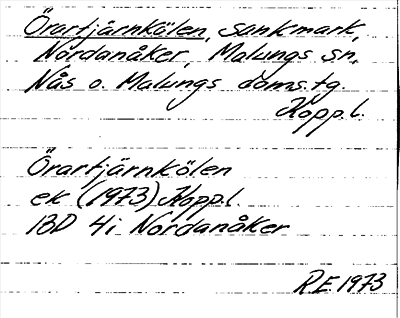 Örartjärnkölen, sankmark,
Nordanåker, Malungs sn,
Nås o. Malungs doms.tg.
Kopp.l.
Örartjärnkölen
ek (1973) Kopp.l.
13D 4i Nordanåker
R.E. 1973